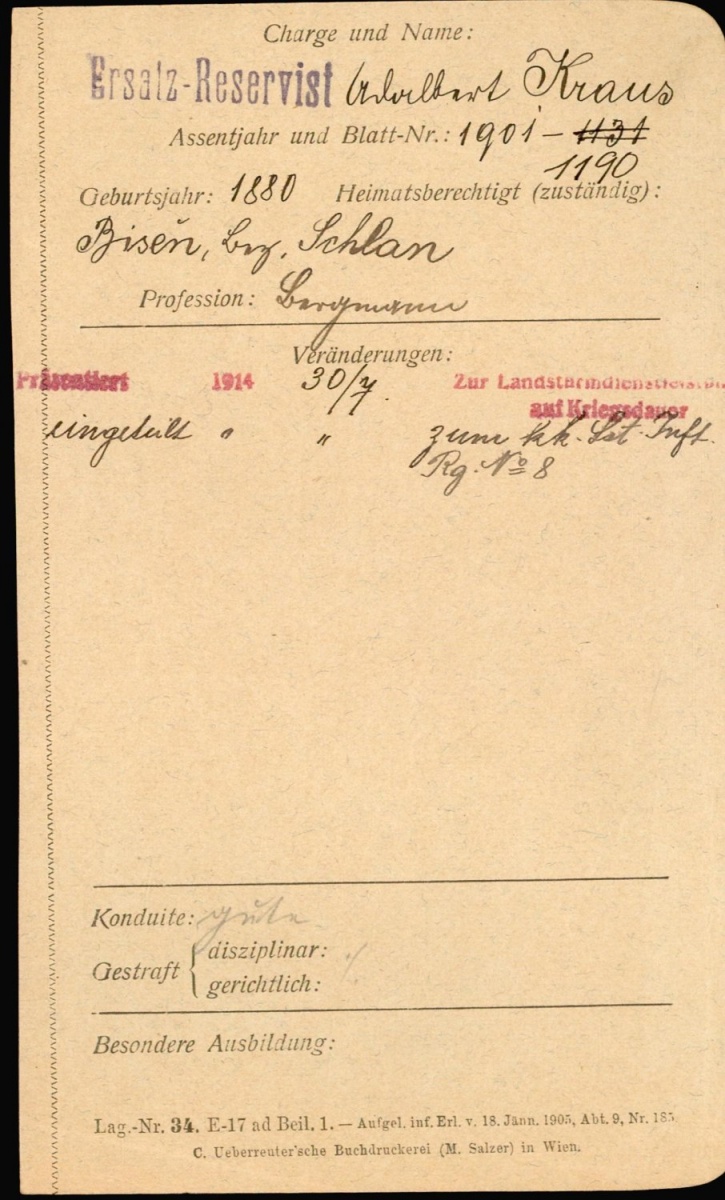 Charge und Name:
Ersatz-Reservist Adalbert Kraus
Assentjahr und Blatt-Nr.: 1901 - 1131
1190
Geburtsjahr: 1880 Heimatsberechtigt (zuständig):
Bisěn, Bez. Schlan
Profession: Bergmann
Veränderungen:
Präsentiert 1914 30/7. Zur Landsturmdienstleistun
auf Kriegsdauer
eingeteilt " " zum kk. Lst. Inft.
Rg. No 8
Konduite: gute
Gestraft { disziplinar:
gerichtlich:
Besondere Ausbildung:
Lag.-Nr. 34. E-17 ad Beil. 1. — Aufgel. inf. Erl. v. 18. Jänn. 1905, Abt. 9, Nr. 185
C. Ueberreuter'sche Buchdruckerei (M. Salzer) in Wien.